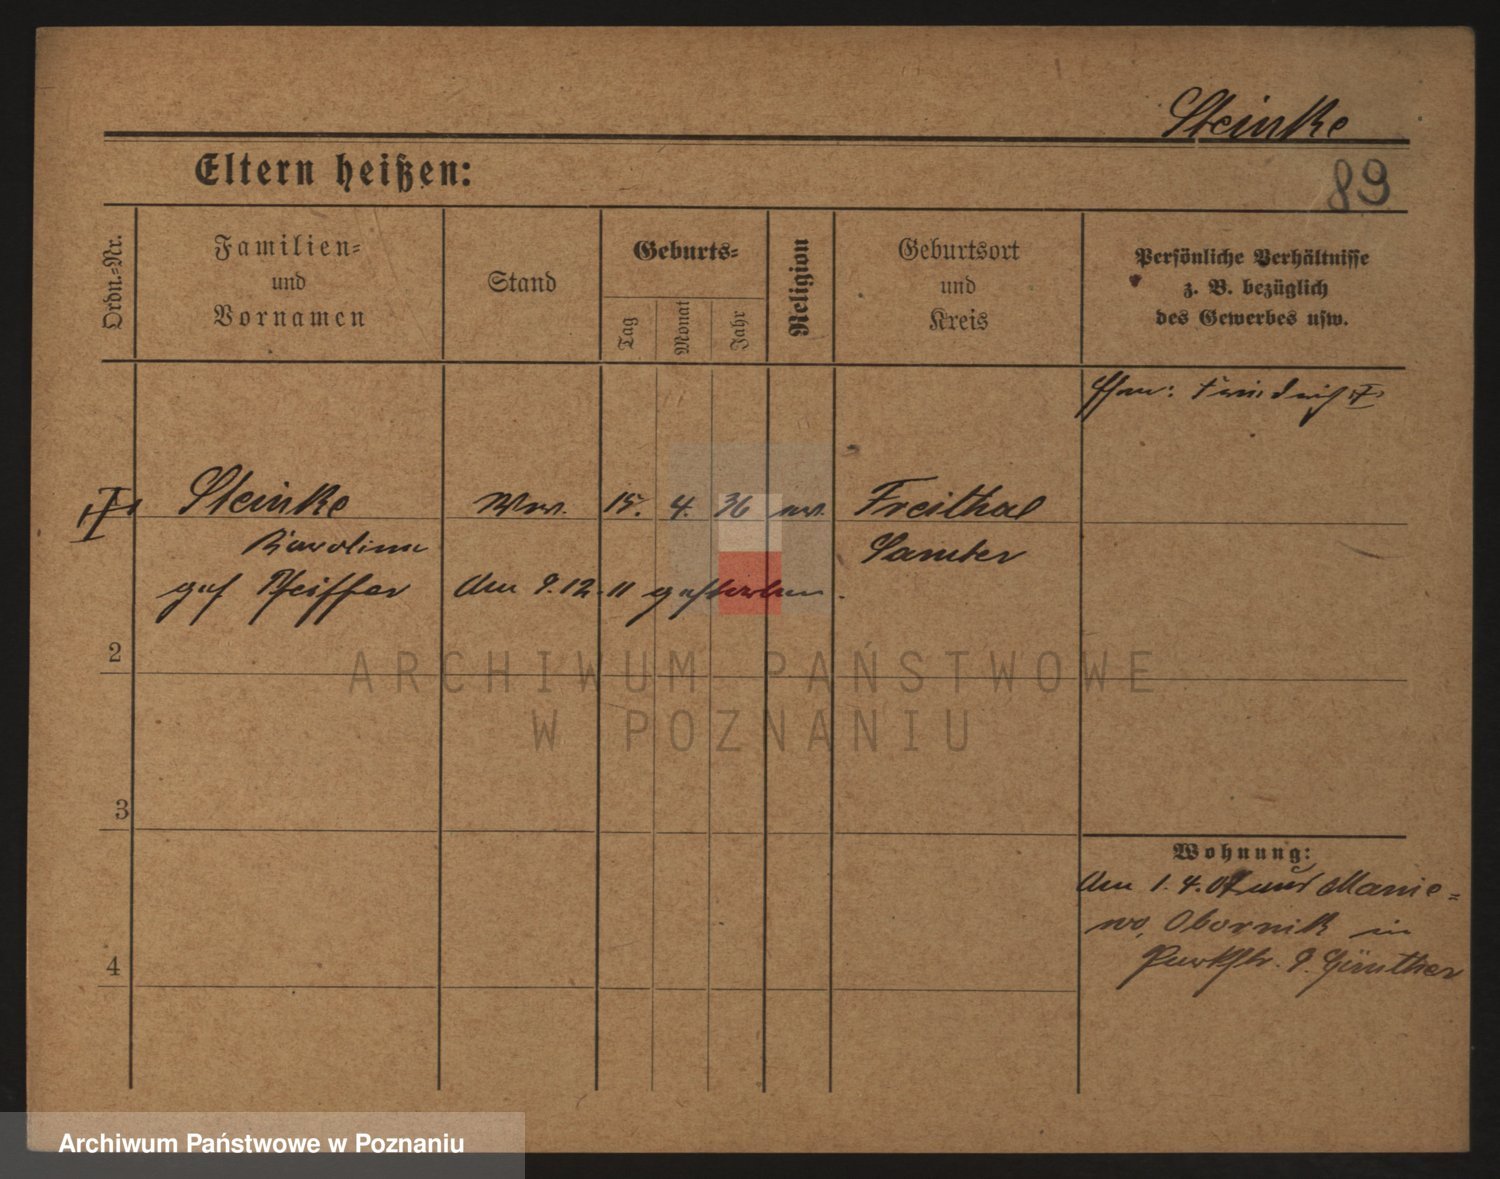 Steinke
Eltern heißen:
89
Ordn.-Nr.
Familien-
und
Vornamen
Stand
Geburts-
Tag
Monat
Jahr
Religion
Geburtsort
und
Kreis
Persönliche Verhältnisse
z. B. bezüglich
des Gewerbes usw.
Friedrich
Steinke
Ww.
15.
4.
36
ev.
Freithal
Karoline
Samter
geb Pfeiffer
Am 9.12.11 gestorben.
2
3
4
Wohnung:
Am 1.4.07 aus Manie-
wo, Obornik in
Parkstr. 9. Günther
ARCHIWUM PAŃSTWOWE
W POZNANIU
Archiwum Państwowe w Poznaniu